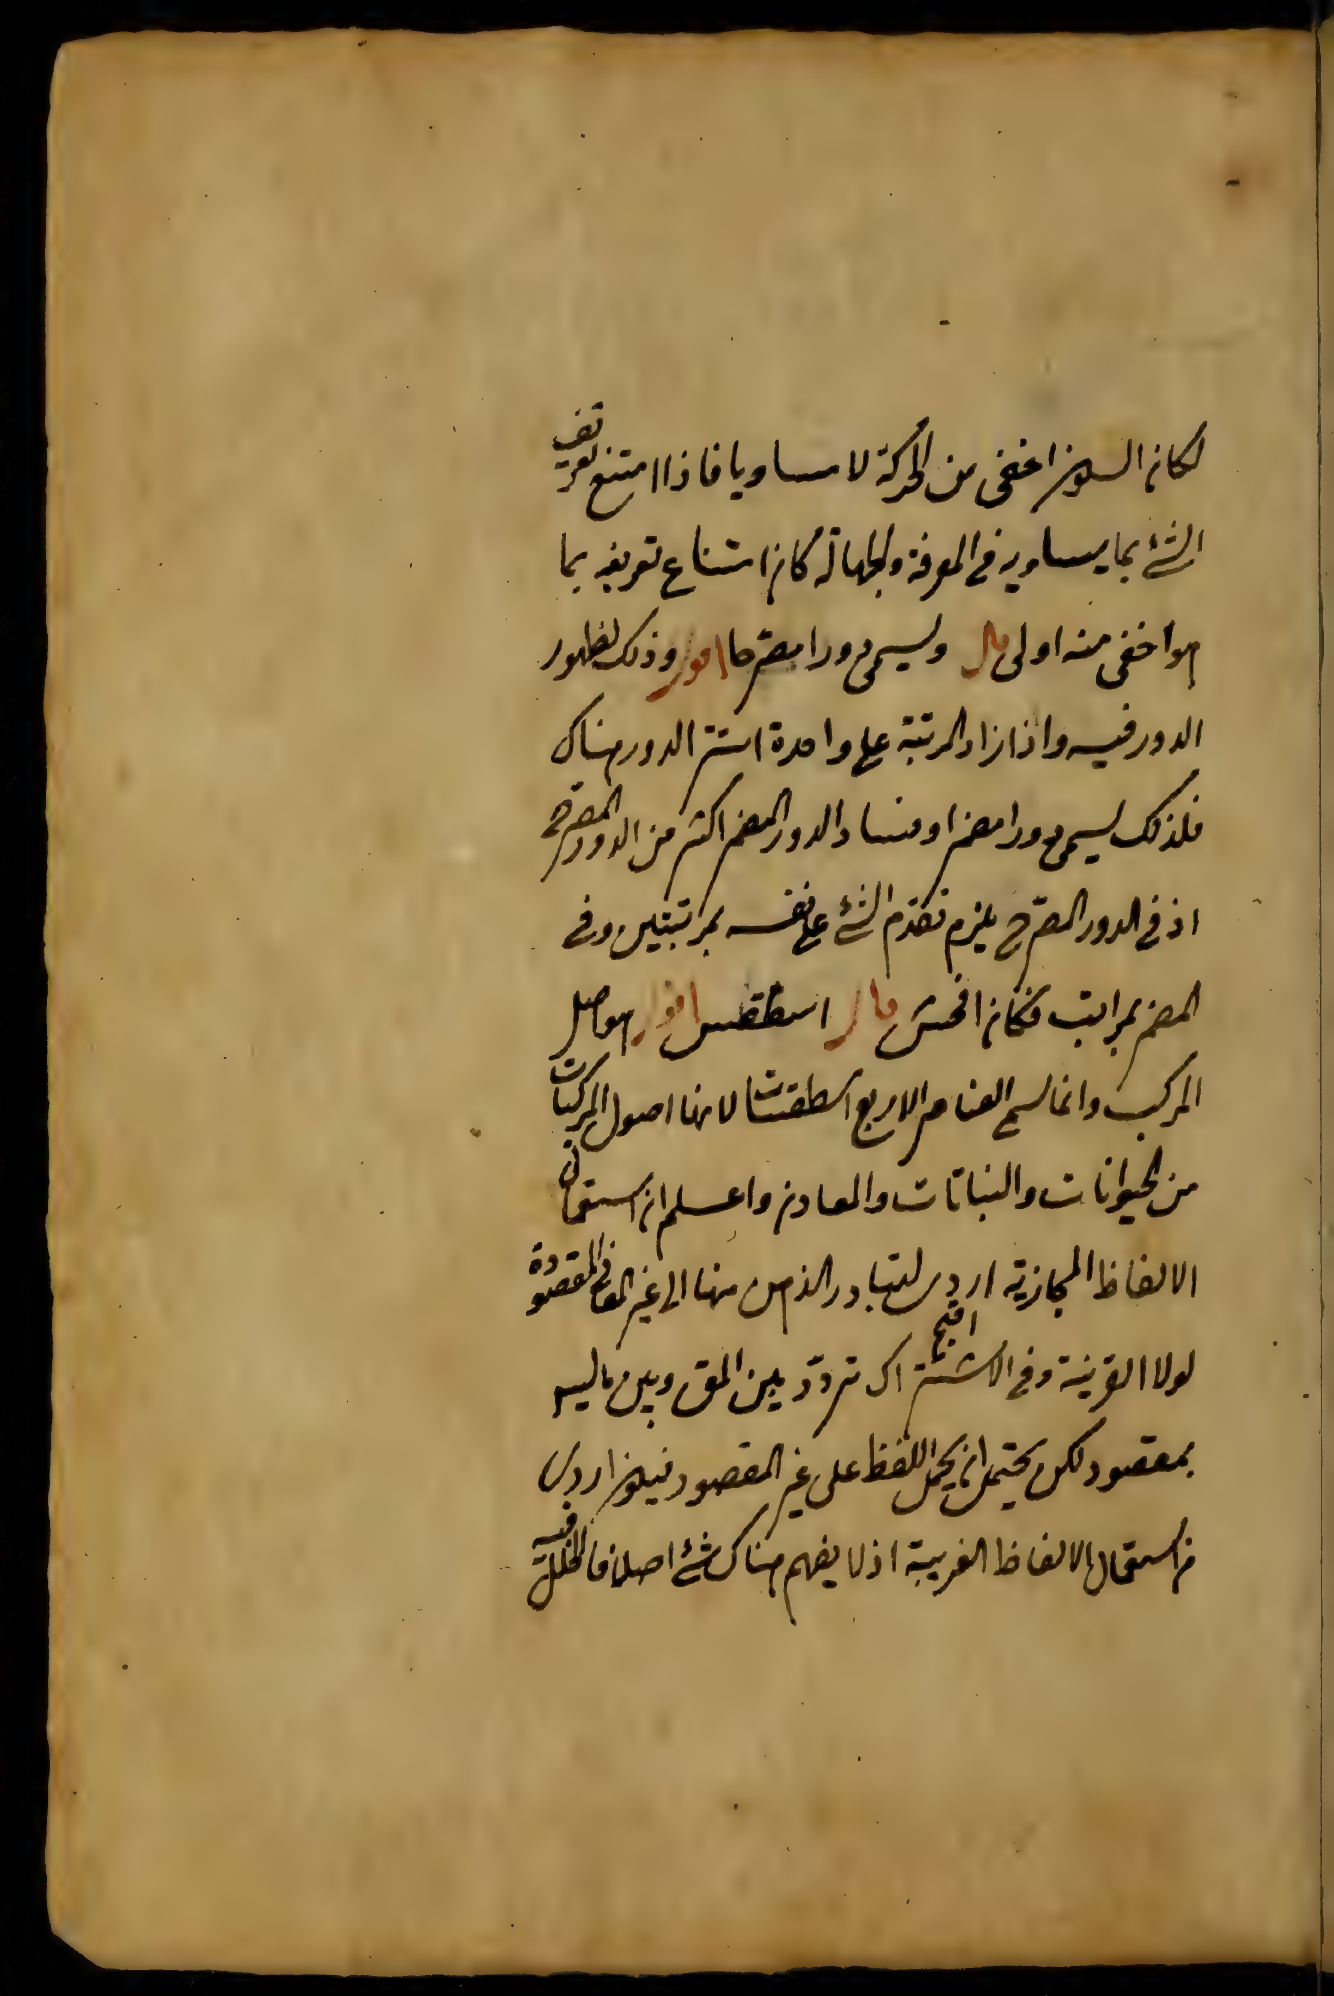 لكان السكون اخفى من الحركة لا مساويا فاذا امتنع تعريف
الشئ بما يساويه فى المعرفة والجهالة كان امتناع تعريفه بما
هو اخفى منه اولى قال ويسمى دورا مصرحا اقول وذلك لظهور
الدور فيه واذا زاد المرتبة على واحدة استتر الدور هناك
فلذلك يسمى دورا مضمرا وفساد الدور المضمر اكثر من الدور المصرح
اذ فى الدور المصرح يلزم تقدم الشئ على نفسه بمرتبتين وفى
المضمر بمراتب فكان افحش قال اسطقس اقول هو اصل
المركب وانما يسمى العناصر الاربع اسطقسات لانها اصول المركبات
من الحيوانات والنباتات والمعادن واعلم ان استعمال
الالفاظ المجازية اردى لتبادر الذهن منها الى غير المعانى المقصودة
لولا القرينة وفى الاشتراك اقبح تردد بين المق وبين ما ليس
بمقصود لكن يحتمل ان يحمل اللفظ على غير المقصود فيكون اردى
من استعمال الالفاظ الغريبة اذ لا يفهم هناك شئ اصلا فالخلل فيه